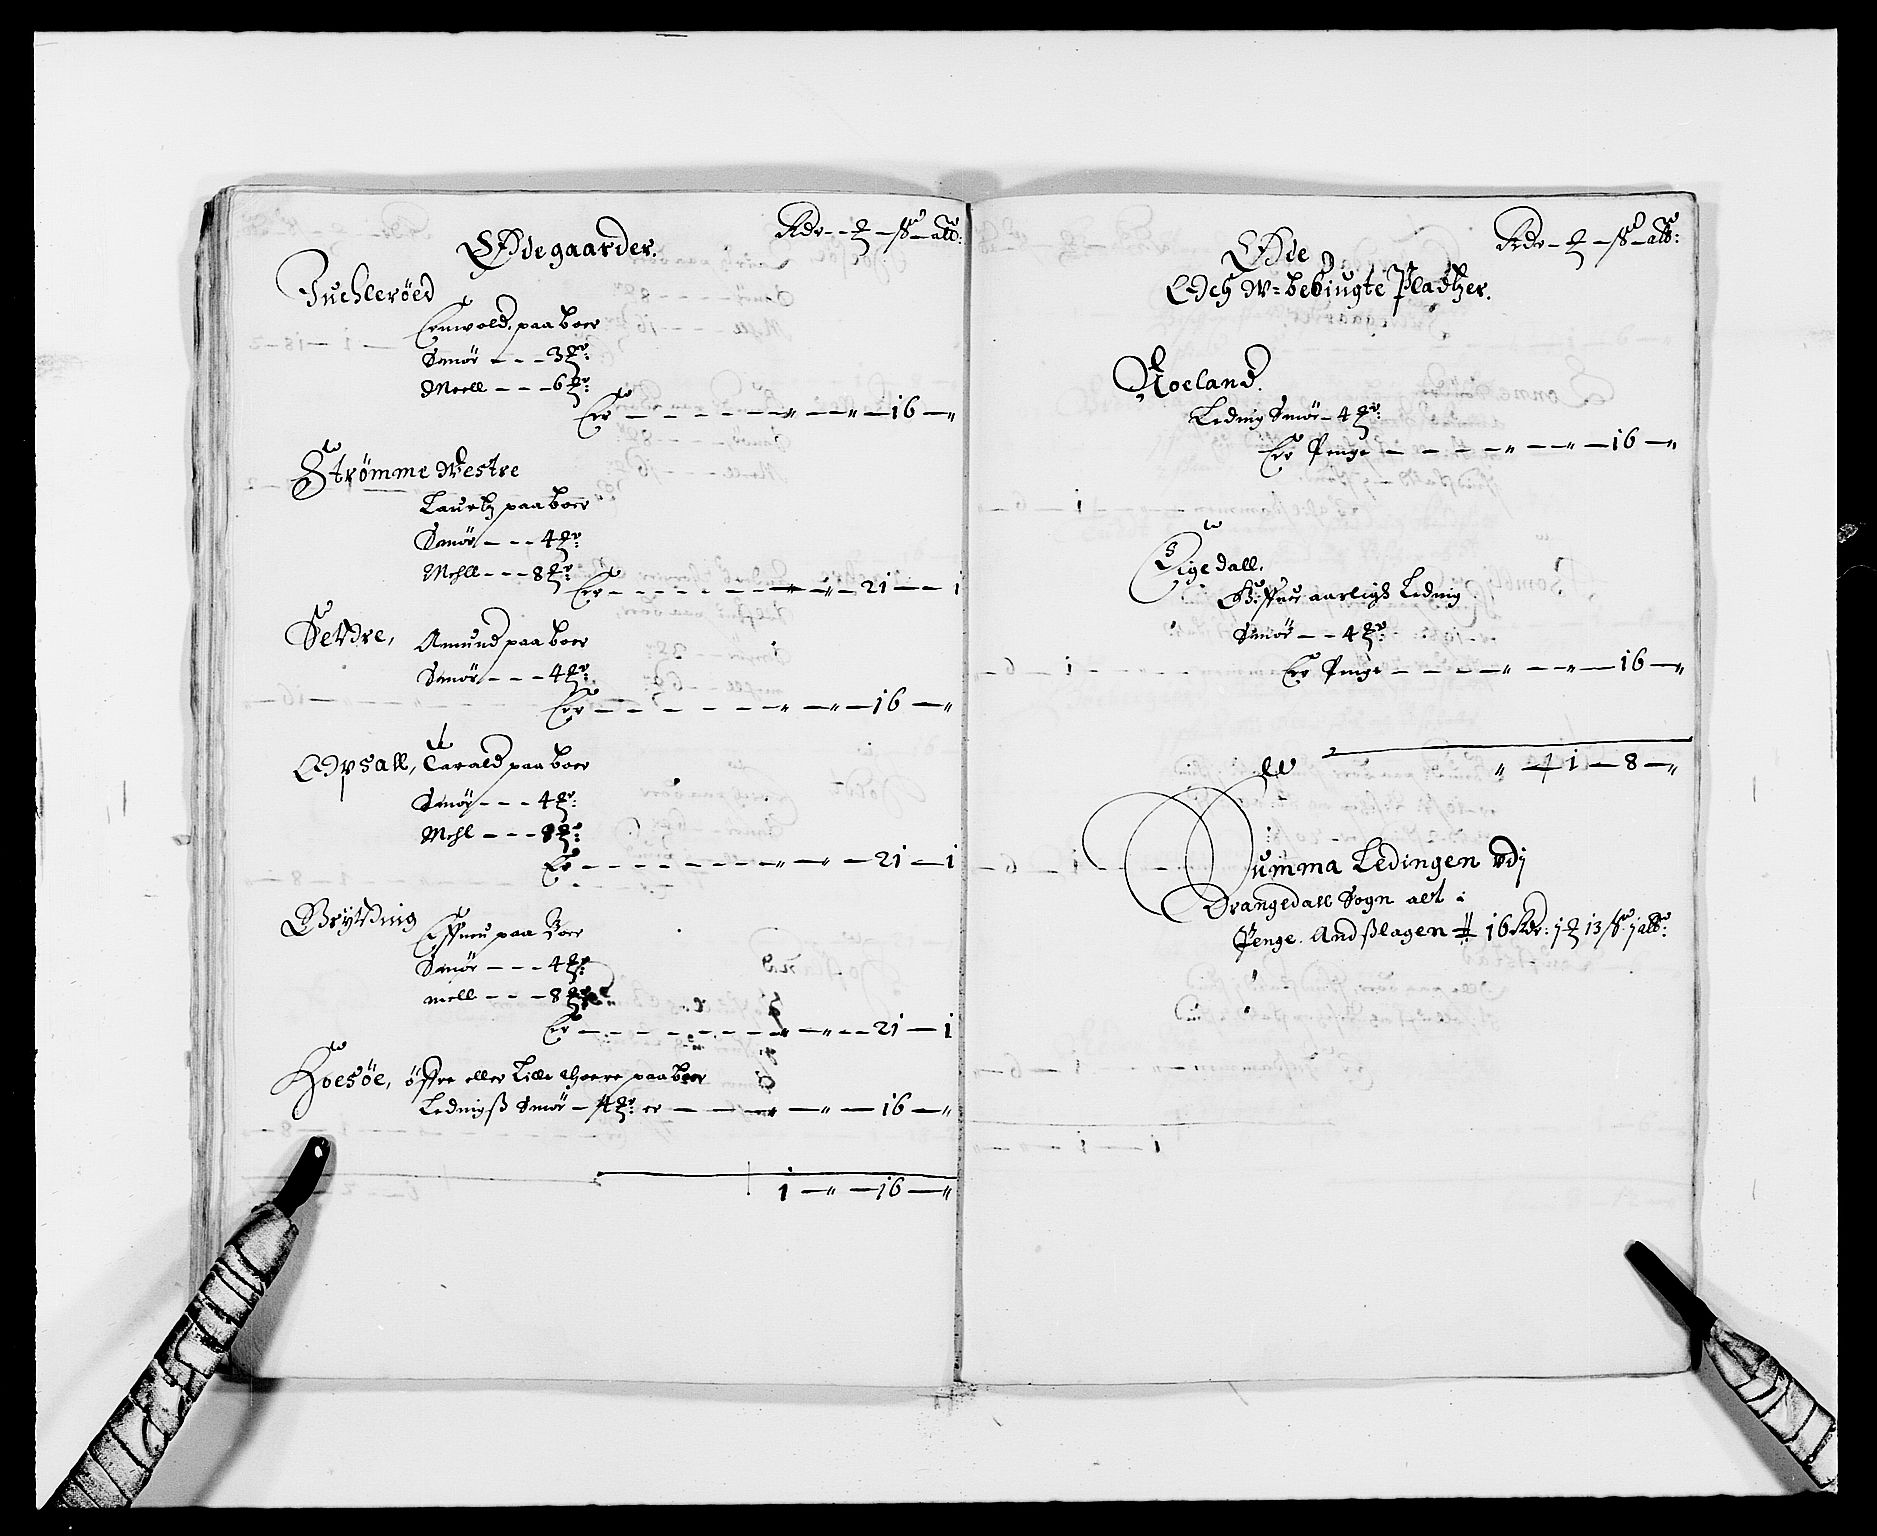 Ødegaarder. Rdr — — ß — alb:
Juchlerøed
paaboer
Smør — — — 3
Meell — — — 6
Er — — — — — „ — „ — 16 — „
Strømme Westre
Lauritz paaboer
Smør — — — 4
Mehll — — — 8
Er — — — — — „ — 21 — 1
Setdre, Amund paaboer
Smør — — — 4
Er — — — — — „ — „ — 16 — „
Opsall, Tarald paaboer
Smør — — — 4
Mehl — — — 8
Er — — — — — „ — „ — 21 — 1
Brytding paa Boer
Smør — — — 4
miell — — — 8
Er — — — — — „ — „ — 21 — 1
Hoesøe, øffre eller Lille paaboer
Ledingß Smør — 4 er — — — „ — „ — 16 — „
1 — „ — 16 — „
Øde Rdr — — ß — alb:
Och W=bebiugte Pladtzer.
Roeland.
Leding Smør — 4
Er Penge — — — — „ — „ — 16 — „
Eigedall.
Giffuer aarligh Leding
Smør — — 4
Er Penge — — — — „ — „ — 16 — „
„ — 1 — 8 — „
Summa Ledingen Vdj
Drangedall Sogn alt i
Penge Andßlagen 16 Rdr: j 13 ß j alb: